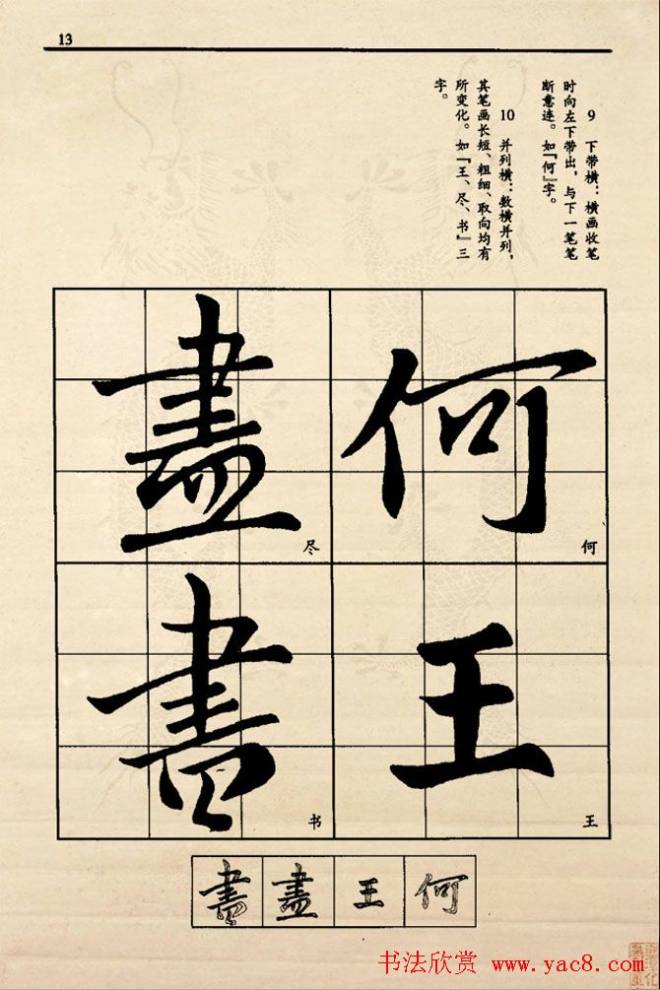 13
9 下带横：横画收笔
时向左下带出，与下一笔笔
断意连。如『何』字。
10 并列横：数横并列，
其笔画长短、粗细、取向均有
所变化。如『王、尽、书』三
字。
何
何
王
王
盡
尽
書
书
書 盡 王 何
书法欣赏 www.yac8.com